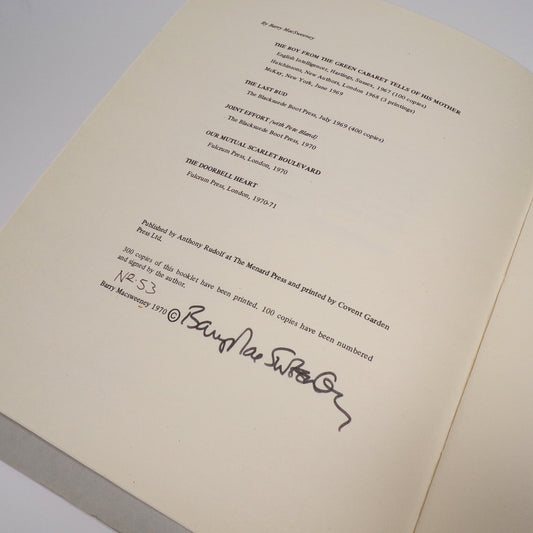 By Barry MacSweeney
THE BOY FROM THE GREEN CABARET TELLS OF HIS MOTHER
English Intelligencer, Hastings, Sussex, 1967 (100 copies)
Hutchinsons, New Authors, London 1968 (3 printings)
McKay, New York, June 1969
THE LAST BUD
The Blacksuede Boot Press, July 1969 (400 copies)
JOINT EFFORT (with Pete Bland)
The Blacksuede Boot Press, 1970
OUR MUTUAL SCARLET BOULEVARD
Fulcrum Press, London, 1970
THE DOORBELL HEART
Fulcrum Press, London, 1970-71
Published by Anthony Rudolf at The Menard Press and printed by Covent Garden
Press Ltd.
300 copies of this booklet have been printed. 100 copies have been numbered
and signed by the author.
NR.53
Barry Macsweeney 1970 © Barry MacSweeney